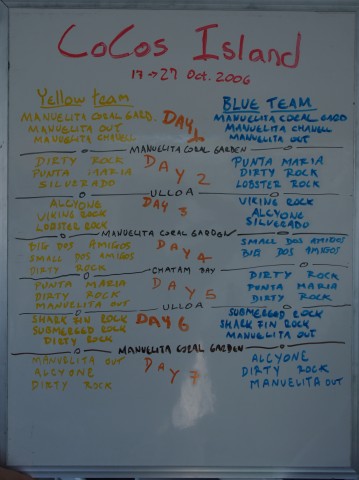 CoCos Island
17 → 27 Oct. 2006
Yellow team
BLUE TEAM
MANUELITA CORAL GARD.
MANUELITA OUT
MANUELITA CHANELL
DAY 1
MANUELITA CORAL GARD
MANUELITA CHANELL
MANUELITA OUT
MANUELITA CORAL GARDEN
DIRTY ROCK
PUNTA MARIA
SILVERADO
DAY 2
PUNTA MARIA
DIRTY ROCK
LOBSTER ROCK
ULLOA
ALCYONE
VIKING ROCK
LOBSTER ROCK
DAY 3
VIKING ROCK
ALCYONE
SILVERADO
MANUELITA CORAL GARDEN
BIG DOS AMIGOS
SMALL DOS AMIGOS
DIRTY ROCK
DAY 4
SMALL DOS AMIGOS
BIG DOS AMIGOS
CHATAM BAY
PUNTA MARIA
DIRTY ROCK
MANUELITA OUT
DAY 5
DIRTY ROCK
PUNTA MARIA
DIRTY ROCK
ULLOA
SHARK FIN ROCK
SUBMERGED ROCK
DIRTY ROCK
DAY 6
SUBMERGED ROCK
SHARK FIN ROCK
MANUELITA OUT
MANUELITA CORAL GARDEN
MANUELITA OUT
ALCYONE
DIRTY ROCK
DAY 7
ALCYONE
DIRTY ROCK
MANUELITA OUT